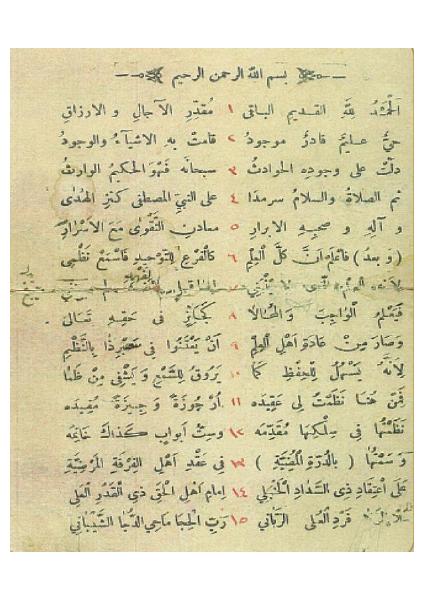 بسم الله الرحمن الرحيم
الحمد لله القديم الباقي ١ مقدر الآجال و الارزاق
حيّ عليم قادر موجود ٢ قامت به الاشياء والوجود
دلت على وجوده الحوادث ٣ سبحانه فهو الحكيم الوارث
ثم الصلاة والسلام سرمدا ٤ على النبي المصطفى كنز الهدى
و آله و صحبه الابرار ٥ معادن التقوى مع الاسرار
( وبعد ) فاعلم ان كل العلم ٦ كالفرع للتوحيد فاسمع نظمي
لانه العلم
فيعلم الواجب والمحالا ٨ كجائز في حقه تعالى
وصار من عادة اهل العلم ٩ ان يعتنوا في سبر ذا بالنظم
لانه يسهل للحفظ كما ١٠ يروق للسمع و يشفي من ظما
فمن هنا نظمت لي عقيده ١١ ارجوزة و جيزة مفيده
نظمتها في سلكها مقدمه ١٢ وست ابواب كذاك خاتمه
و سمتها ( بالدرة المضية ) ١٣ في عقد اهل الفرقة المرضية
على اعتقاد ذي السداد الحنبلي ١٤ امام اهل الحق ذي القدر العلي
فرد العلى الرباني ١٥ رب الحجا ماحي الدجا الشيباني